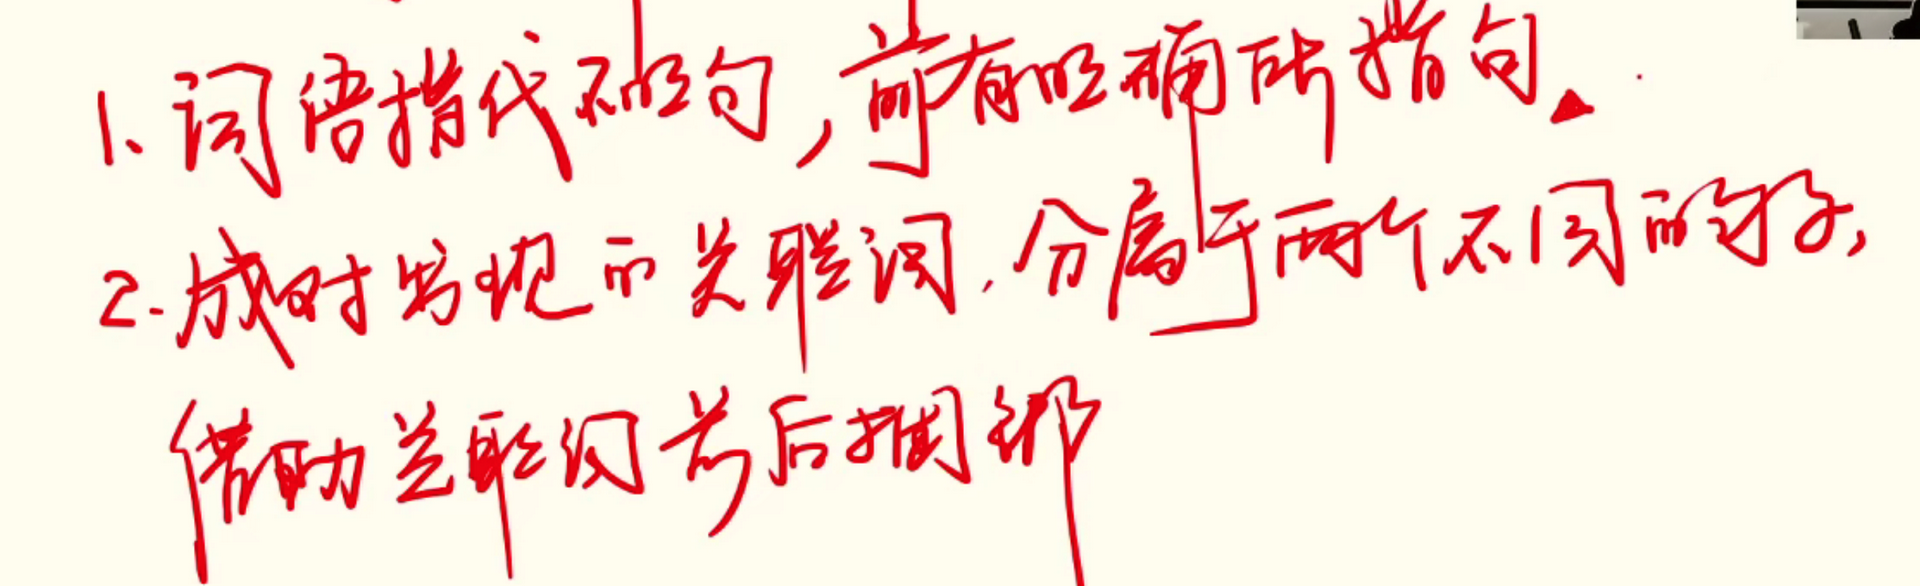 1. 词语指代不明句，前有明确所指句.
2. 成对出现的关联词，分属于两个不同的句子，
借助关联词前后捆绑